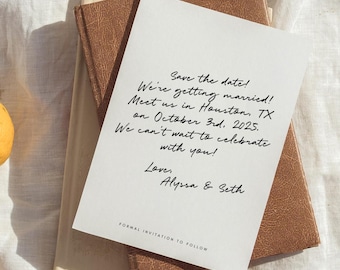 Save the date!
We're getting married!
Meet us in Houston, TX
on October 3rd, 2025.
We can't wait to celebrate
with you!
Love,
Alyssa & Seth
FORMAL INVITATION TO FOLLOW